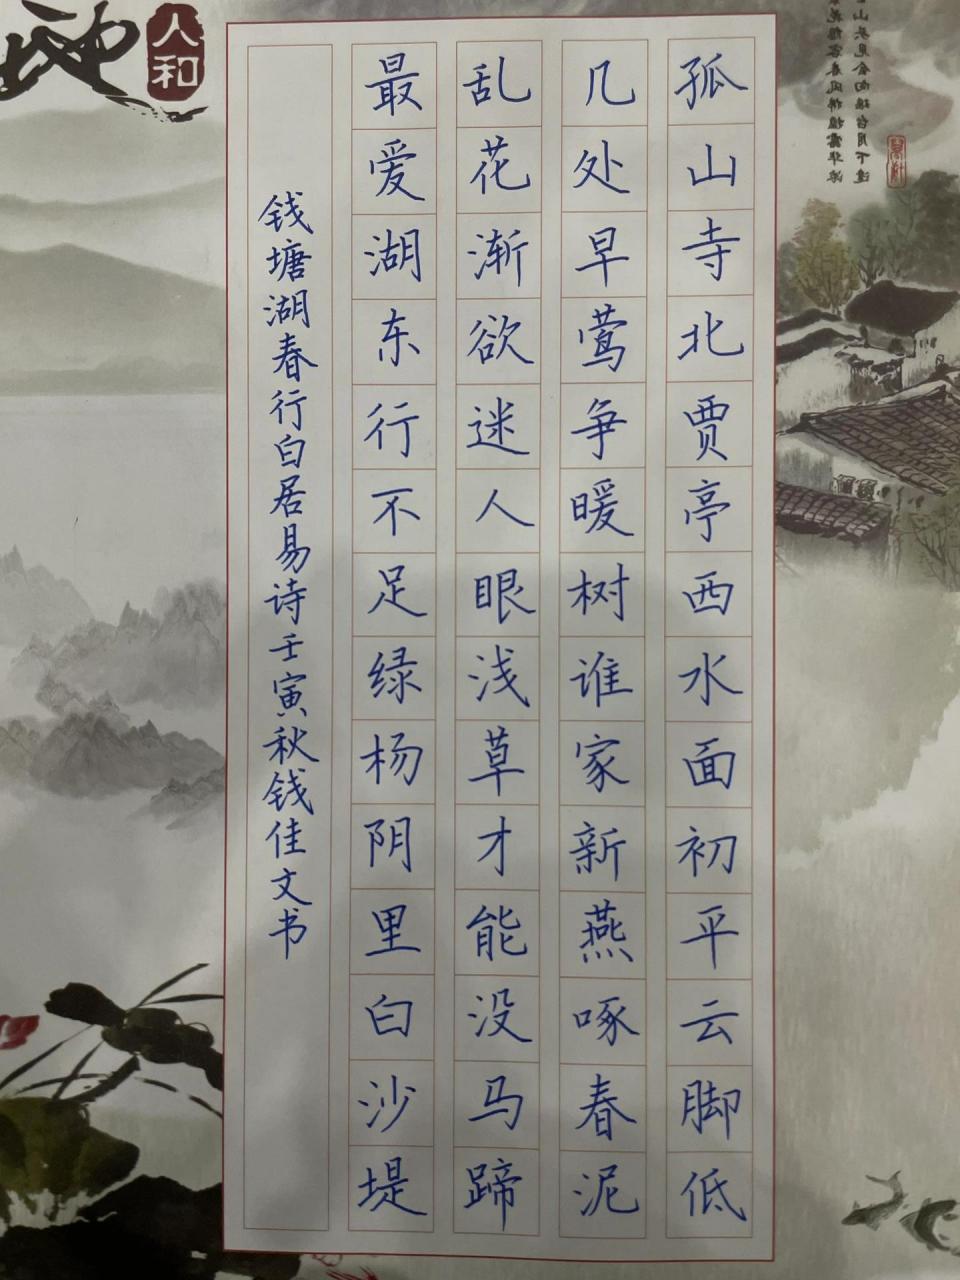 孤山寺北贾亭西水面初平云脚低
几处早莺争暖树谁家新燕啄春泥
乱花渐欲迷人眼浅草才能没马蹄
最爱湖东行不足绿杨阴里白沙堤
钱塘湖春行白居易诗壬寅秋钱佳文书
人和